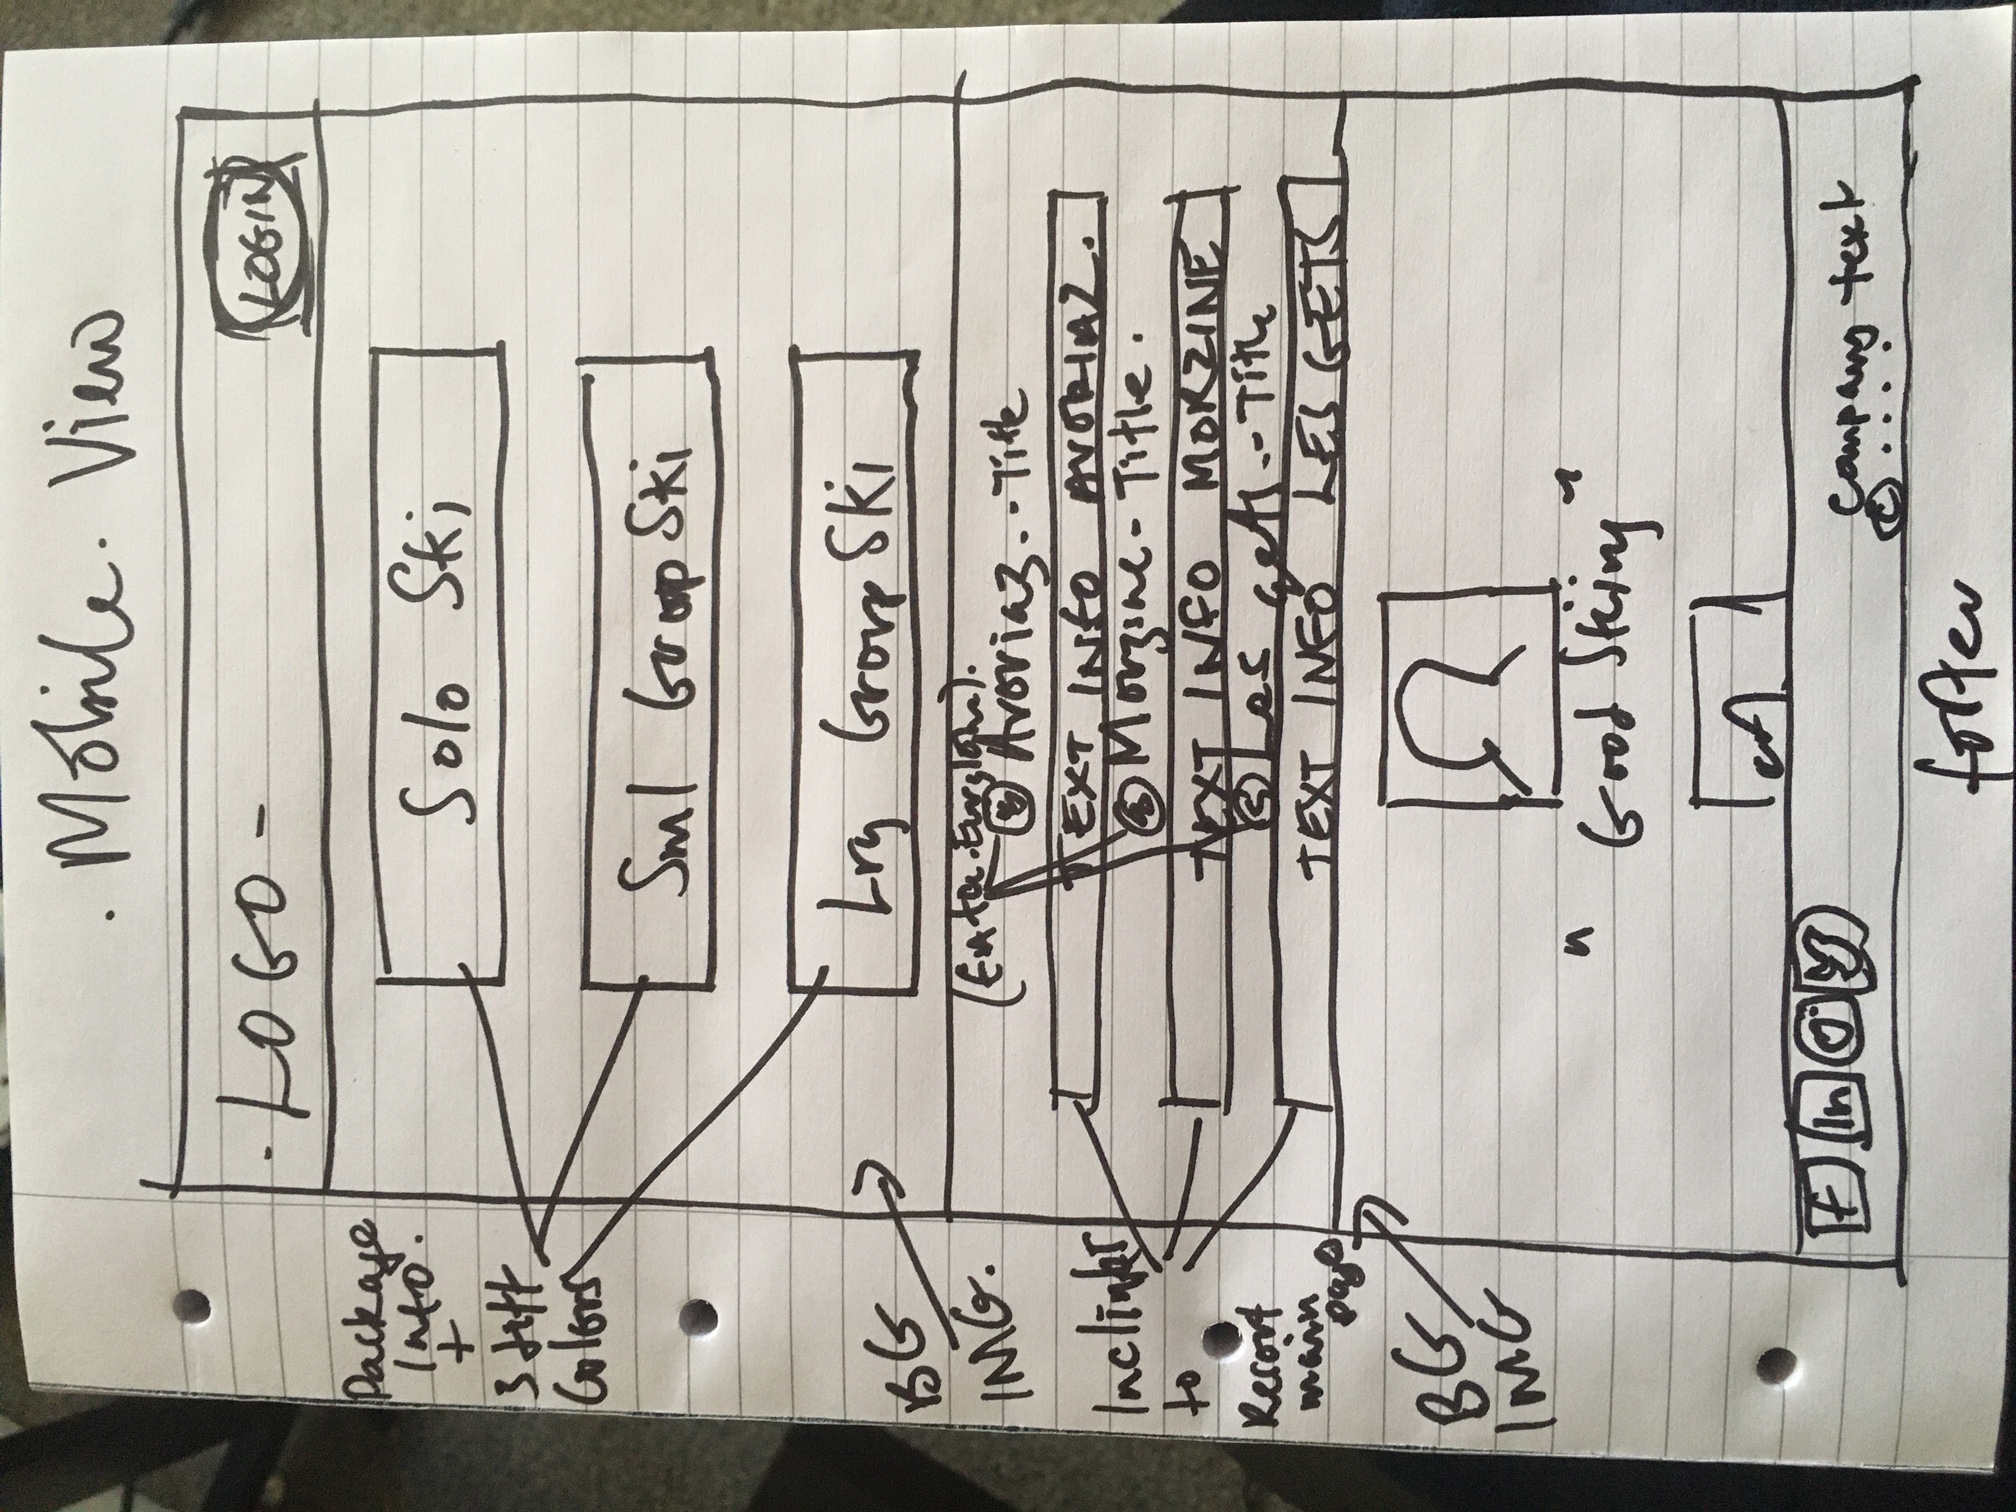 . Mobile. View
- LOGO -
LOGIN
Package
Info.
+
3 diff
Colors
Solo Ski
Sml Group Ski
Lrg Group Ski
BG
IMG.
Avoriaz.. Title
TEXT INFO AVORIAZ.
Morzine - Title.
TEXT INFO MORZINE
Les gets.. Title
TEXT INFO LES GETS
Inc links
to
Resort
main
page
BG
IMG
" Good Skiing "
f in
company text
© . . . .
footer